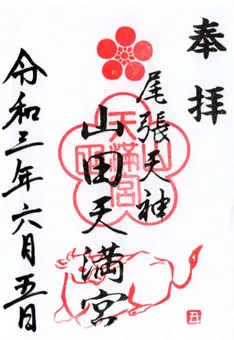 奉拝
尾張天神
山田天満宮
令和三年六月五日
天満宮